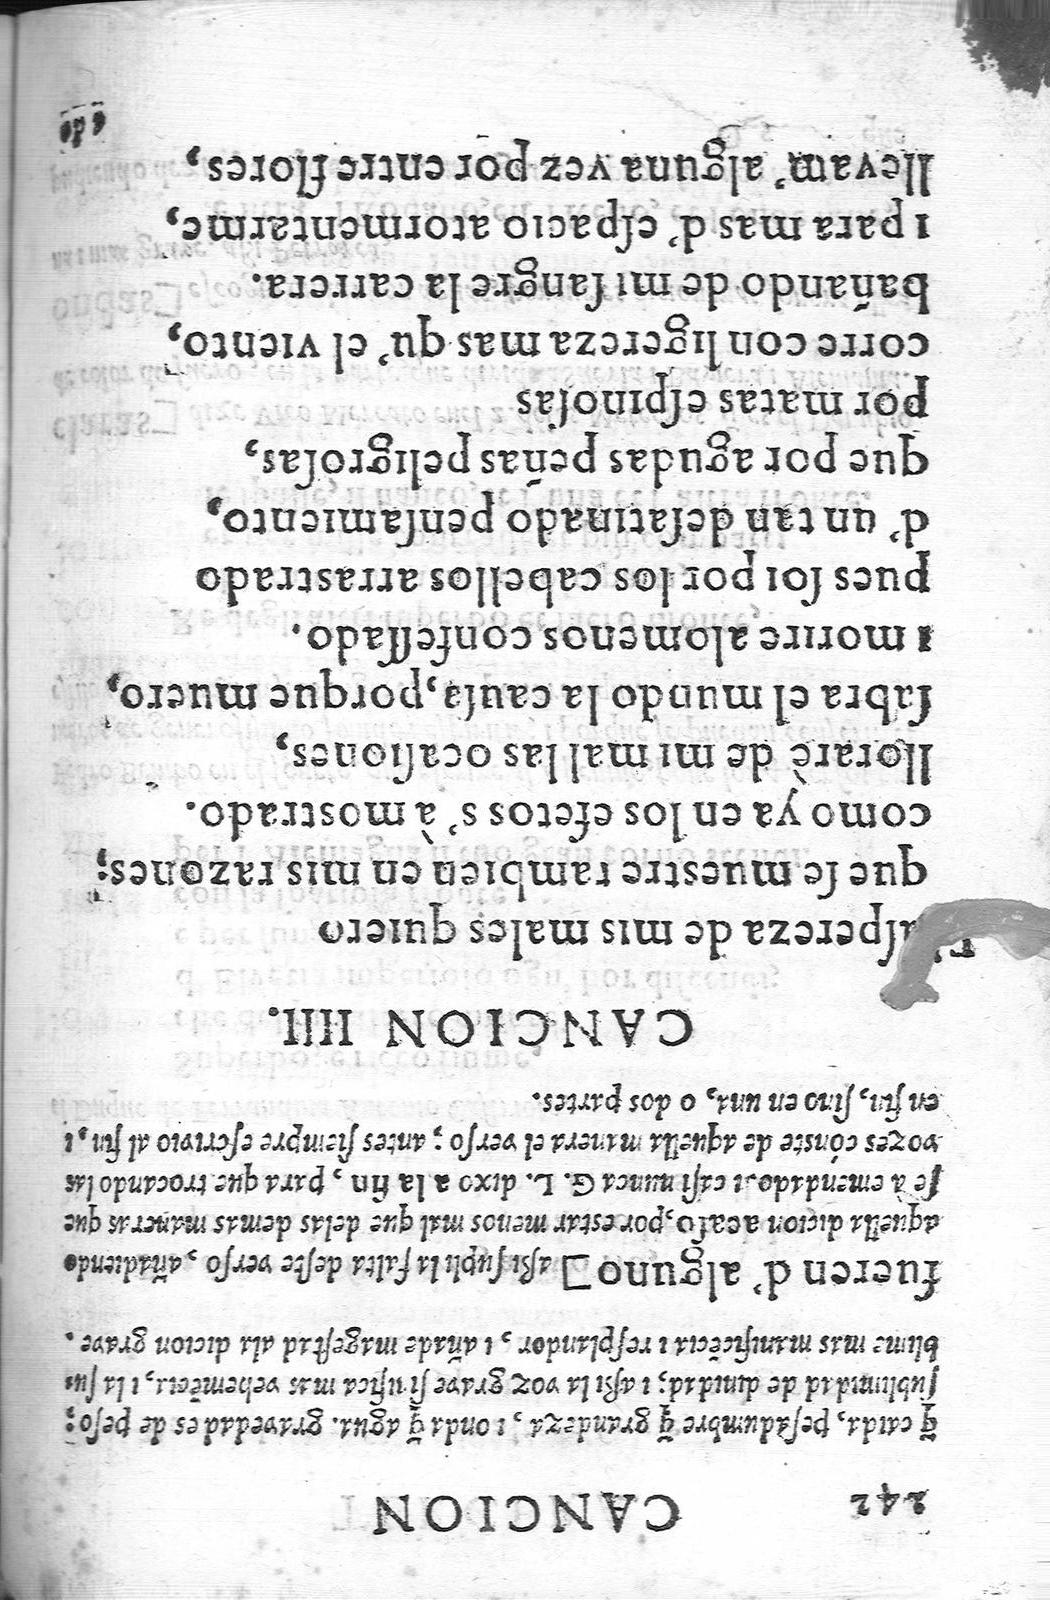 242 CANCION
q̃ caida, pesadumbre q̃ grandeza, i onda q̃ agua. gravedad es de peso;
sublimidad de dinidad; i assi la voz grave sinifica mas vehemẽcia, i la su-
blime mas manificẽcia i resplandor, i añade magestad ala dicion grave.
fueren d' alguno] assi supli la falta deste verso, añadiendo
aquella dicion acaso, por estar menos mal que delas demas maneras que
se à emendado. i casi nunca G. L. dixo a la fin, para que trocando las
vozes cónste de aquella manera el verso; antes siempre escrivio al fin, i
en fin, sino en una, o dos partes.
CANCION IIII.
aspereza de mis males quiero
que se muestre tambien en mis razones;
como ya en los efetos s' à mostrado.
llorarè de mi mal las ocasiones,
sabra el mundo la causa, porque muero,
i morire alomenos confessado.
pues soi por los cabellos arrastrado
d' un tan desatinado pensamiento,
que por agudas peñas peligrosas,
por matas espinosas
corre con ligereza mas qu' el viento,
bañando de mi sangre la carrera.
i para mas d' espacio atormentarme,
llevam' alguna vez por entre flores,